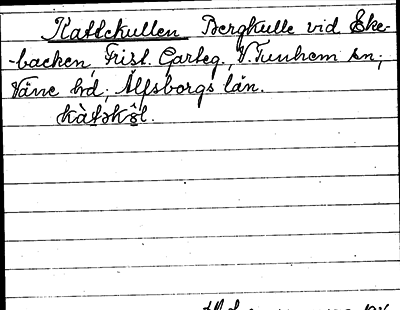 Kattekullen Bergkulle vid Eke-
-backen, Frist. Garteg., V. Tunhem sn,
Väne hd, Älfsborgs län.
kàtəkŏ̂l.